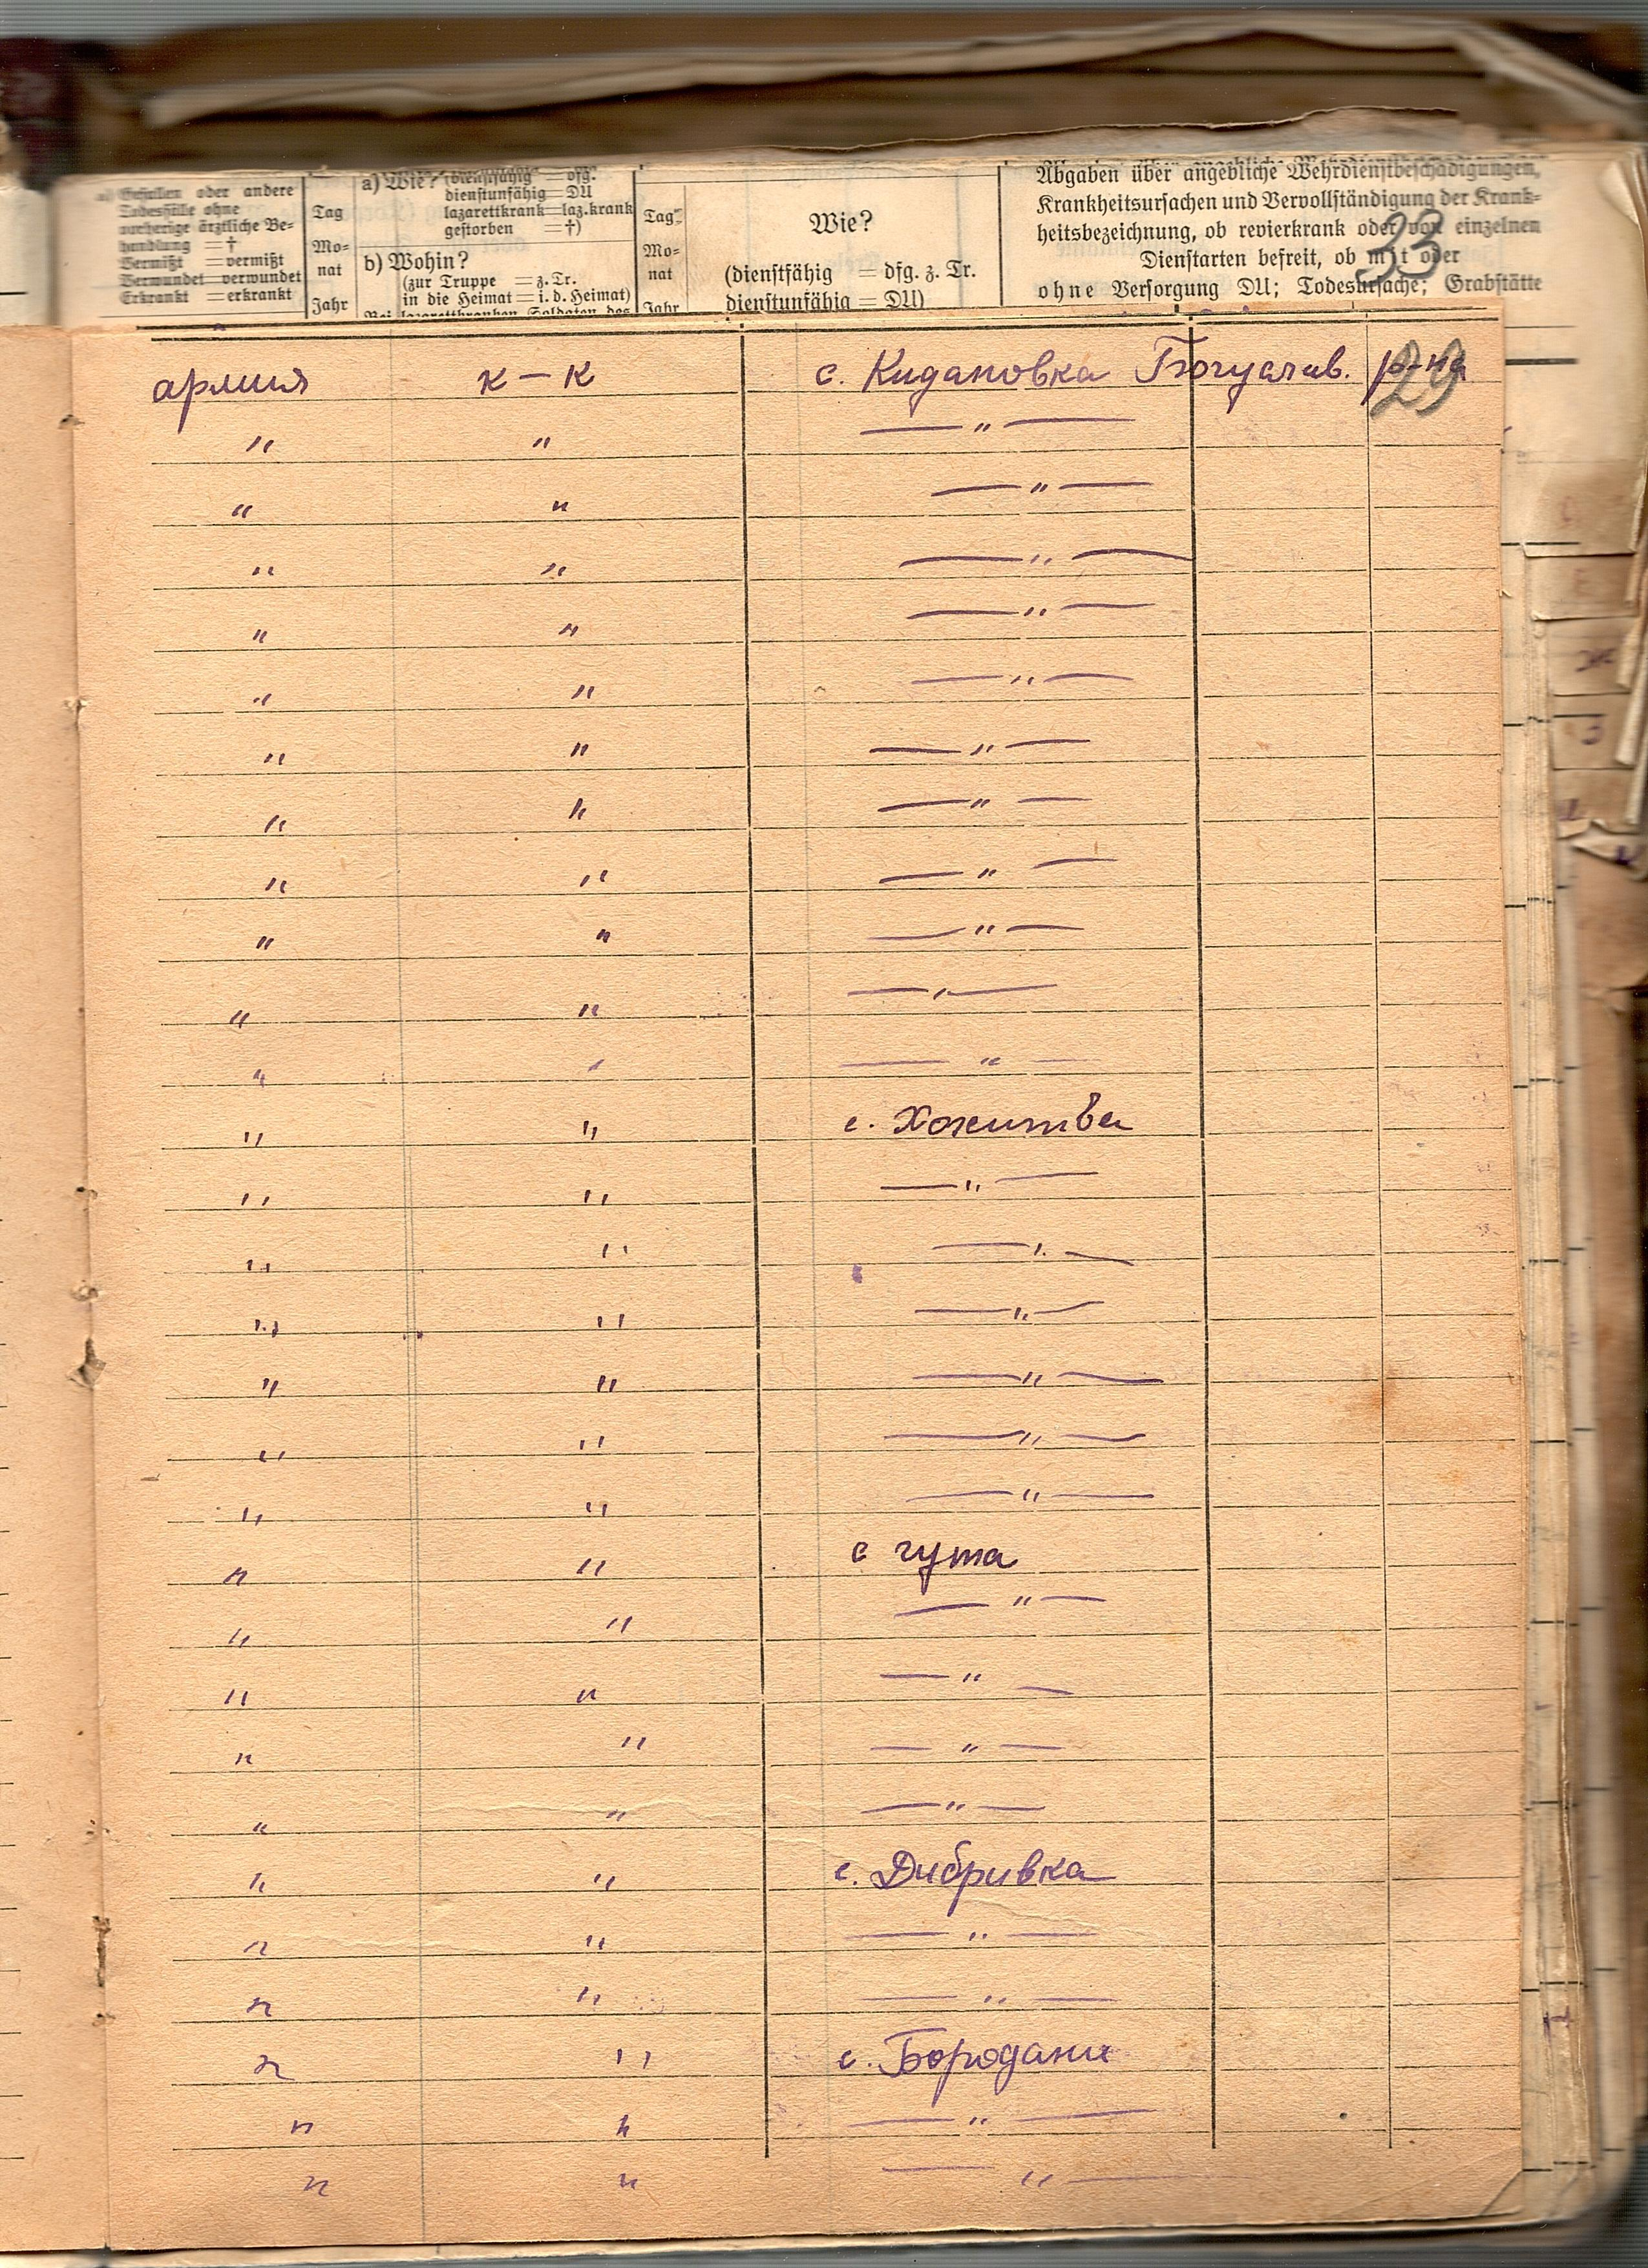 a) Gefallen oder andere
Todesfälle ohne
vorherige ärztliche Be-
handlung = †
Vermißt = vermißt
Verwundet = verwundet
Erkrankt = erkrankt
Tag
Mo-
nat
Jahr
a) Wie? (dienstfähig = dfg.
dienstunfähig = DU
lazarettkrank = laz.krank
gestorben = †)
b) Wohin?
(zur Truppe = z. Tr.
in die Heimat = i. d. Heimat)
Bei lazarettkranken Soldaten des
Tag
Mo-
nat
Jahr
Wie?
(dienstfähig = dfg. z. Tr.
dienstunfähig = DU)
Abgaben über angebliche Wehrdienstbeschädigungen,
Krankheitsursachen und Vervollständigung der Krank-
heitsbezeichnung, ob revierkrank oder von einzelnen
Dienstarten befreit, ob mit oder
ohne Versorgung DU; Todesursache; Grabstätte
33
29
армия к – к с. Кидановка Богуслав. р-на
" " — " —
" " — " —
" " — " —
" " — " —
" " — " —
" " — " —
" " — " —
" " — " —
" " — " —
" " — " —
" " — " —
" " с. Хохитва
" " — " —
" " — " —
" " — " —
" " — " —
" " — " —
" " — " —
" " с гута
" " — " —
" " — " —
" " — " —
" " — " —
" " с. Дибривка
" " — " —
" " — " —
" " с. Бородани
" " — " —
" " — " —